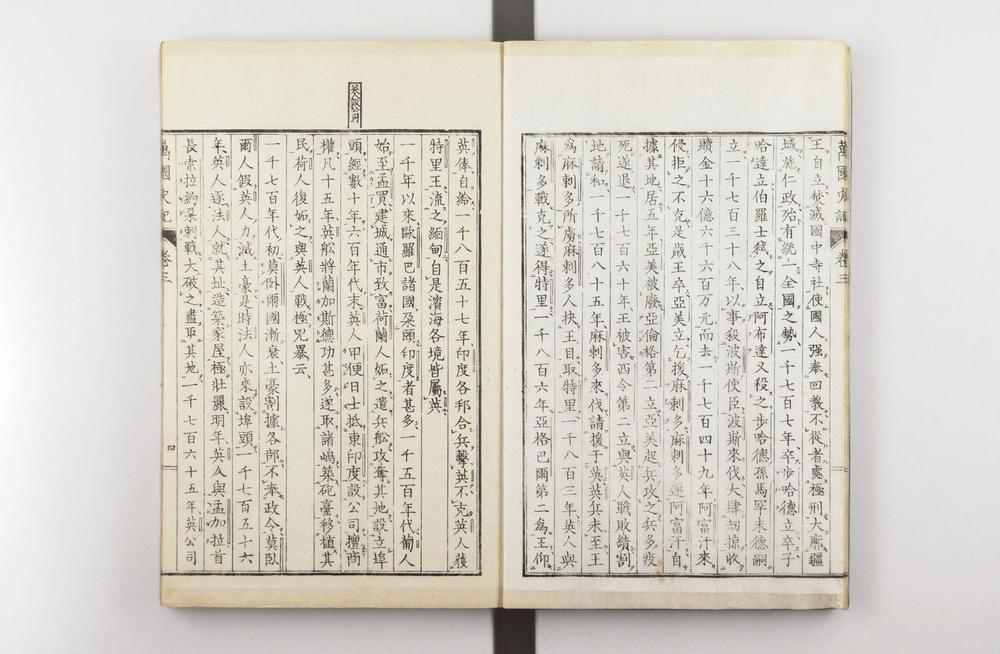 王自立焚滅國中寺社使國人強奉回敎不從者處極刑大廓疆
域施仁政殆有統一全國之勢一千七百七年卒步哈德立卒子
哈達立伯羅士弒之自立阿布達又殺之步哈德孫馬罕末德嗣
立一千七百三十八年以事殺波斯使臣波斯來伐大肆劫掠收
贖金十六億六千六百万元而去一千七百四十九年阿富汗來
侵拒之不克是歲王卒亞美立乞援麻剌多麻剌多逐阿富汗自
據其地居五年亞美被廢亞倫格第二立亞美起兵攻之兵多疫
死遂退一千七百六十年王被害西令第二立與英人戰敗績割
地請和一千七百八十五年麻剌多來伐請援于英英兵未至王
爲麻剌多所虜麻剌多人挾王目取特里一千八百三年英人與
麻剌多戰克之遂得特里一千八百六年亞格巴爾第二爲王仰
卷三
英設公司
英俸自給一千八百五十七年印度各邦合兵擊英不克英人獲
特里王流之緬甸自是濱海各境皆屬英
一千年以來歐羅巴諸國朶頤印度者甚多一千五百年代葡人
始至孟買建城通市致富荷蘭人妬之遣兵船攻奪其地設立埠
頭經數十年六百年代末英人甲便日士抵東印度設公司擅商
權凡十五年英船將蘭加斯德功甚多遂取諸嶋築砲臺移植其
民荷人復妬之與英人戰極兇暴云
一千七百年代初莫臥爾國漸衰土豪割據各部不奉政令莫臥
爾人假英人力減土豪是時法人亦來設埠頭一千七百五十六
年英人逐法人就其址造築家屋極壯麗明年英人與孟加拉首
長索拉約朶刺戰大破之盡取其地一千七百六十五年英公司
萬國史記
卷三
四